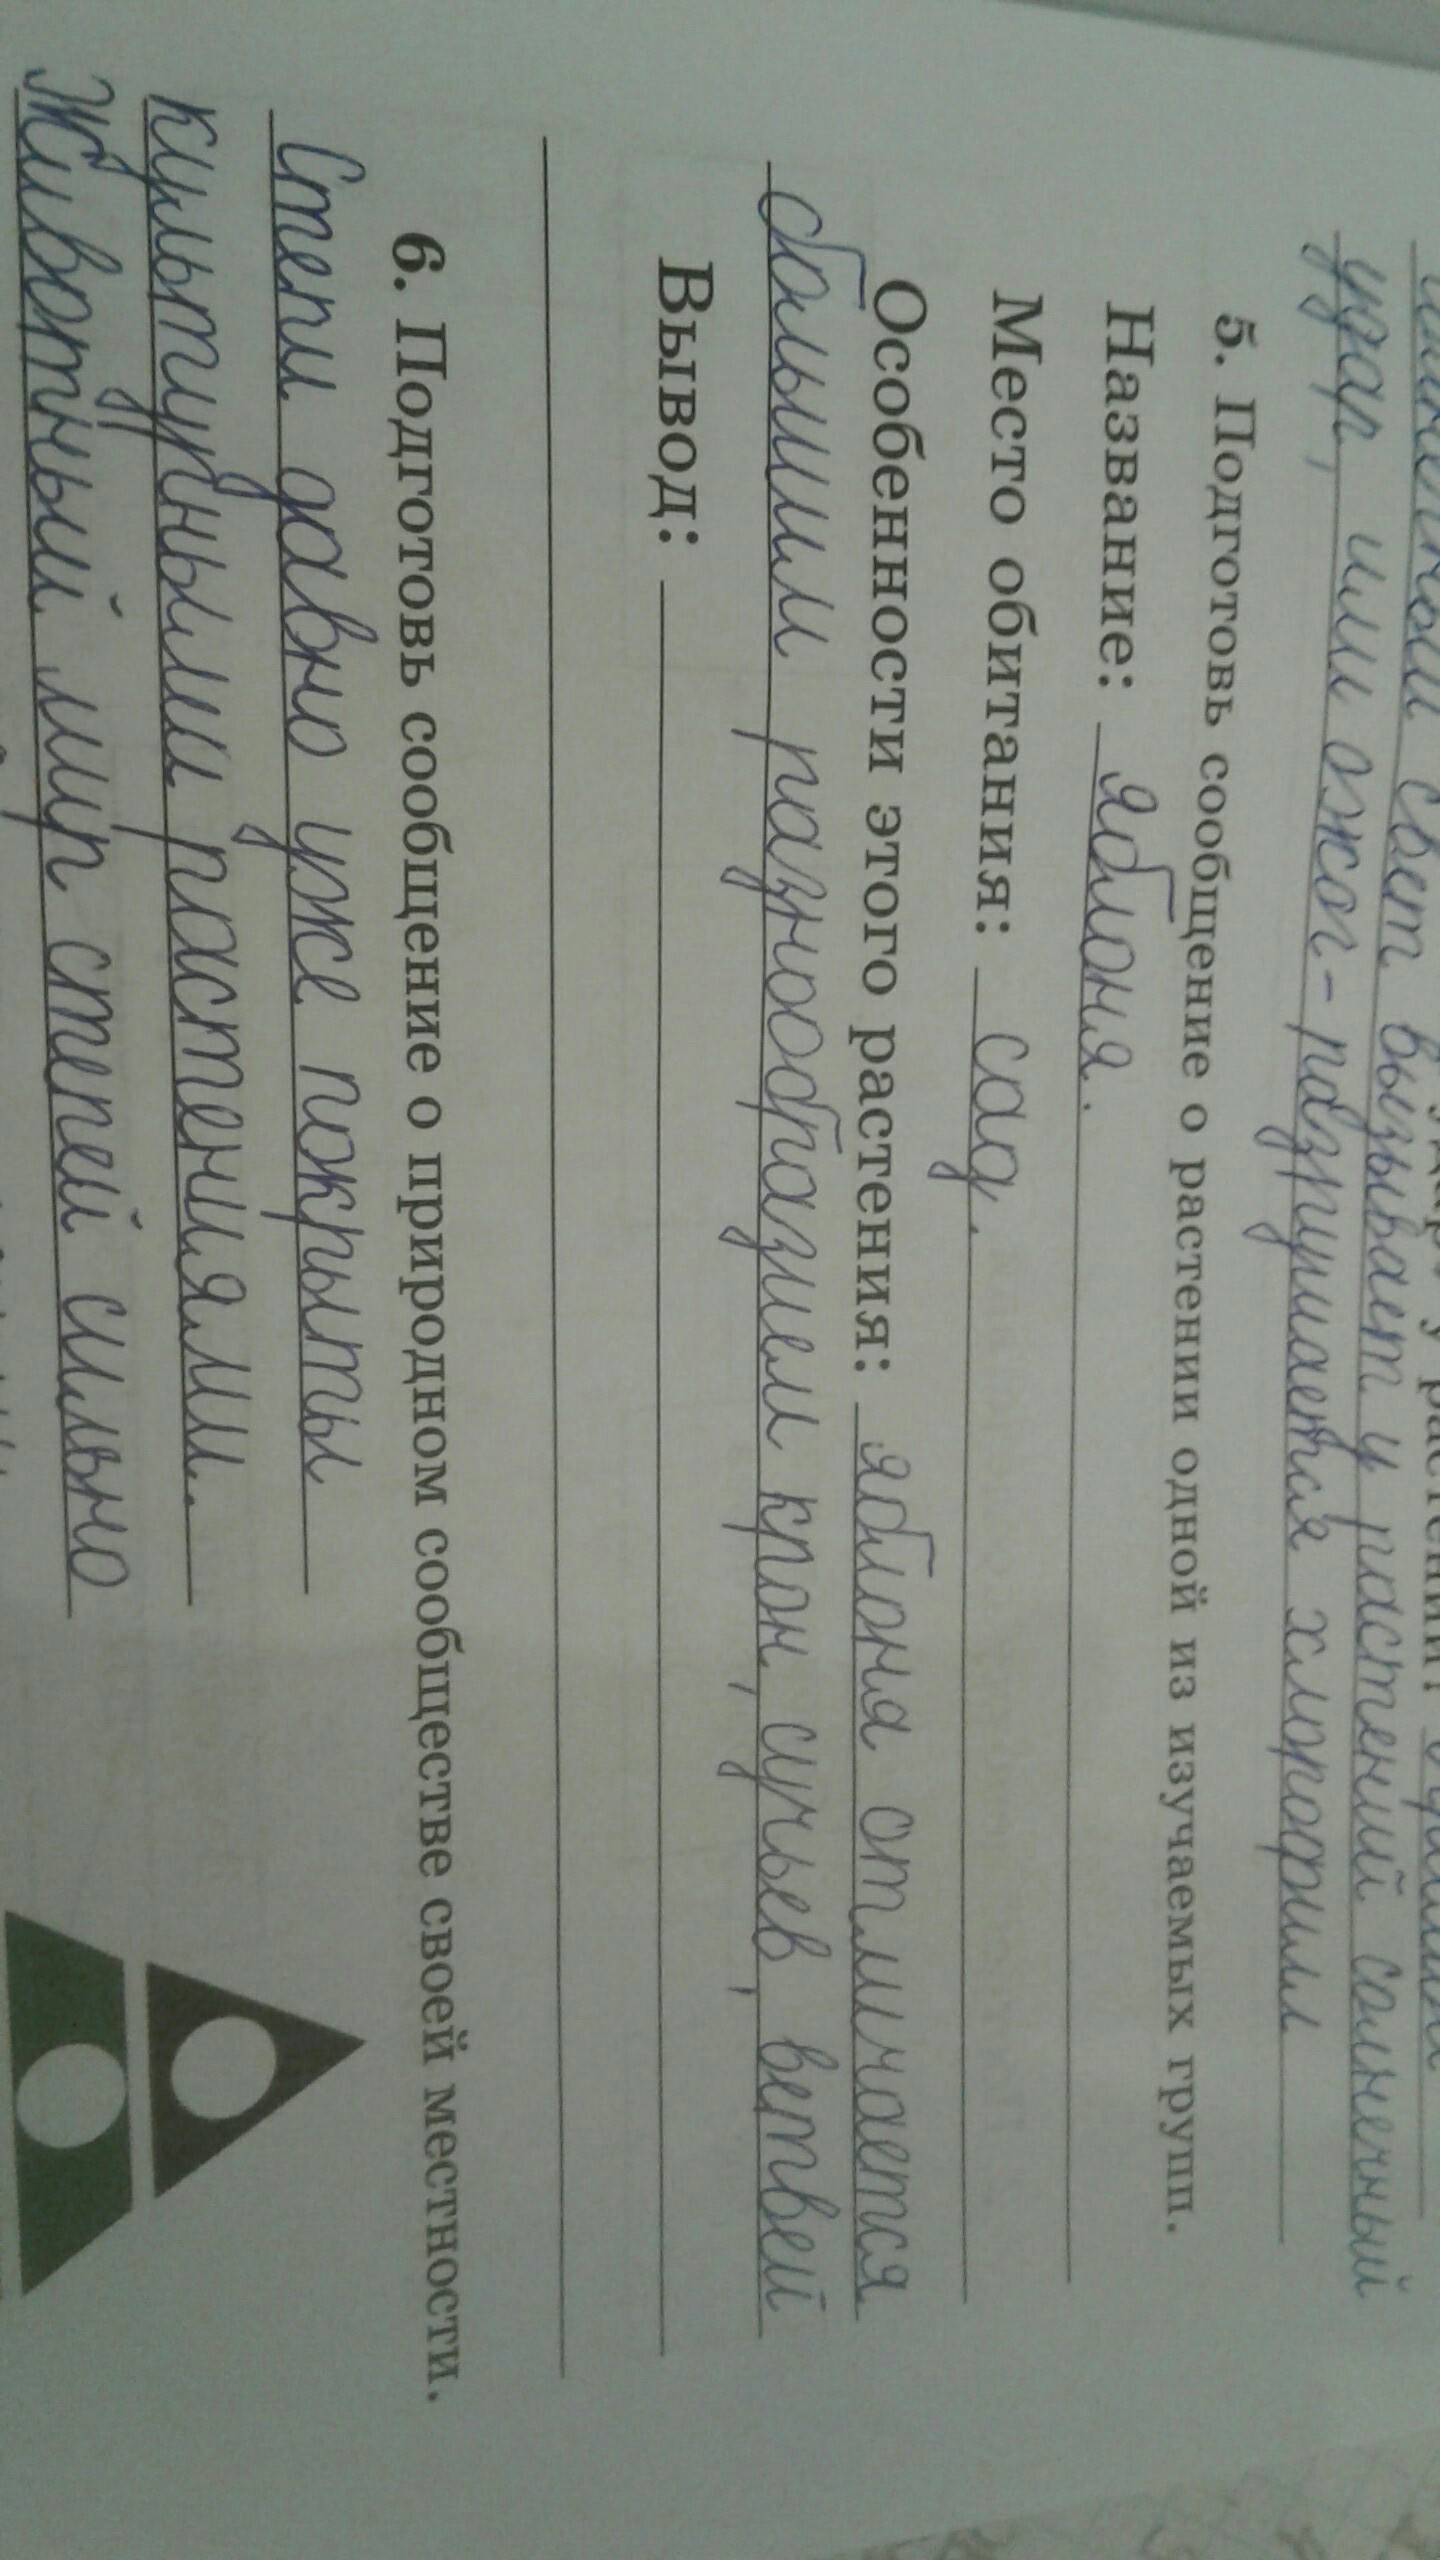 свет вызывает у растений солнечный
удар, или ожог - разрушается хлорофилл
5. Подготовь сообщение о растении одной из изучаемых групп.
Название: яблоня.
Место обитания: сад.
Особенности этого растения: яблоня отличается
большим разнообразием крон, сучьев, ветвей
Вывод:
6. Подготовь сообщение о природном сообществе своей местности.
Степи давно уже покрыты
культурными растениями.
Животный мир степей сильно